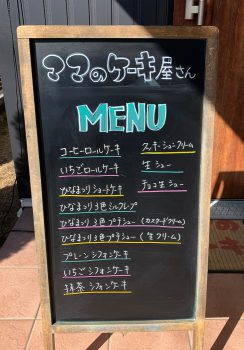 ママのケーキ屋さん
MENU
コーヒーロールケーキ
いちごロールケーキ
ひなまつりショートケーキ
ひなまつり3色ミルクレープ
ひなまつり3色プチシュー（カスタードクリーム）
ひなまつり3色プチシュー（生クリーム）
プレーンシフォンケーキ
いちごシフォンケーキ
抹茶シフォンケーキ
クッキーシュークリーム
生シュー
チョコ生シュー